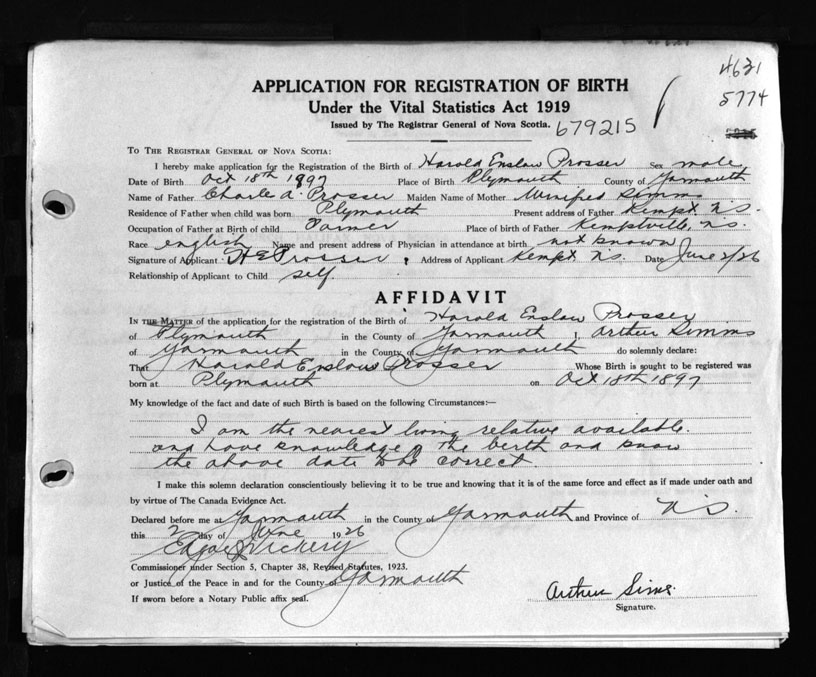 4631
5774
APPLICATION FOR REGISTRATION OF BIRTH
Under the Vital Statistics Act 1919
Issued by The Registrar General of Nova Scotia. 679215
TO THE REGISTRAR GENERAL OF NOVA SCOTIA:
I hereby make application for the Registration of the Birth of Harold Enslow Prosser Sex male
Date of Birth Oct 18th 1897 Place of Birth Plymouth County of Yarmouth
Name of Father Charle A. Prosser Maiden Name of Mother Winifred Simms
Residence of Father when child was born Plymouth Present address of Father Kempt N.S.
Occupation of Father at Birth of child Farmer Place of birth of Father Kemptville, N.S.
Race English Name and present address of Physician in attendance at birth not known
Signature of Applicant H E Prosser Address of Applicant Kempt N.S. Date June 2/26
Relationship of Applicant to Child self.
AFFIDAVIT
IN THE MATTER of the application for the registration of the Birth of Harold Enslow Prosser
of Plymouth in the County of Yarmouth I Arthur Simms
of Yarmouth in the County of Yarmouth do solemnly declare:
That Harold Enslow Prosser Whose Birth is sought to be registered was
born at Plymouth on Oct 18th 1897
My knowledge of the fact and date of such Birth is based on the following Circumstances:—
I am the nearest living relative available.
and have knowledge of the birth and know
the above date to be correct.
I make this solemn declaration conscientiously believing it to be true and knowing that it is of the same force and effect as if made under oath and
by virtue of The Canada Evidence Act.
Declared before me at Yarmouth in the County of Yarmouth and Province of N.S.
this 2 day of June 1926
Vickery
Commissioner under Section 5, Chapter 38, Revised Statutes, 1923.
or Justice of the Peace in and for the County of Yarmouth
If sworn before a Notary Public affix seal.
Arthur Sims.
Signature.